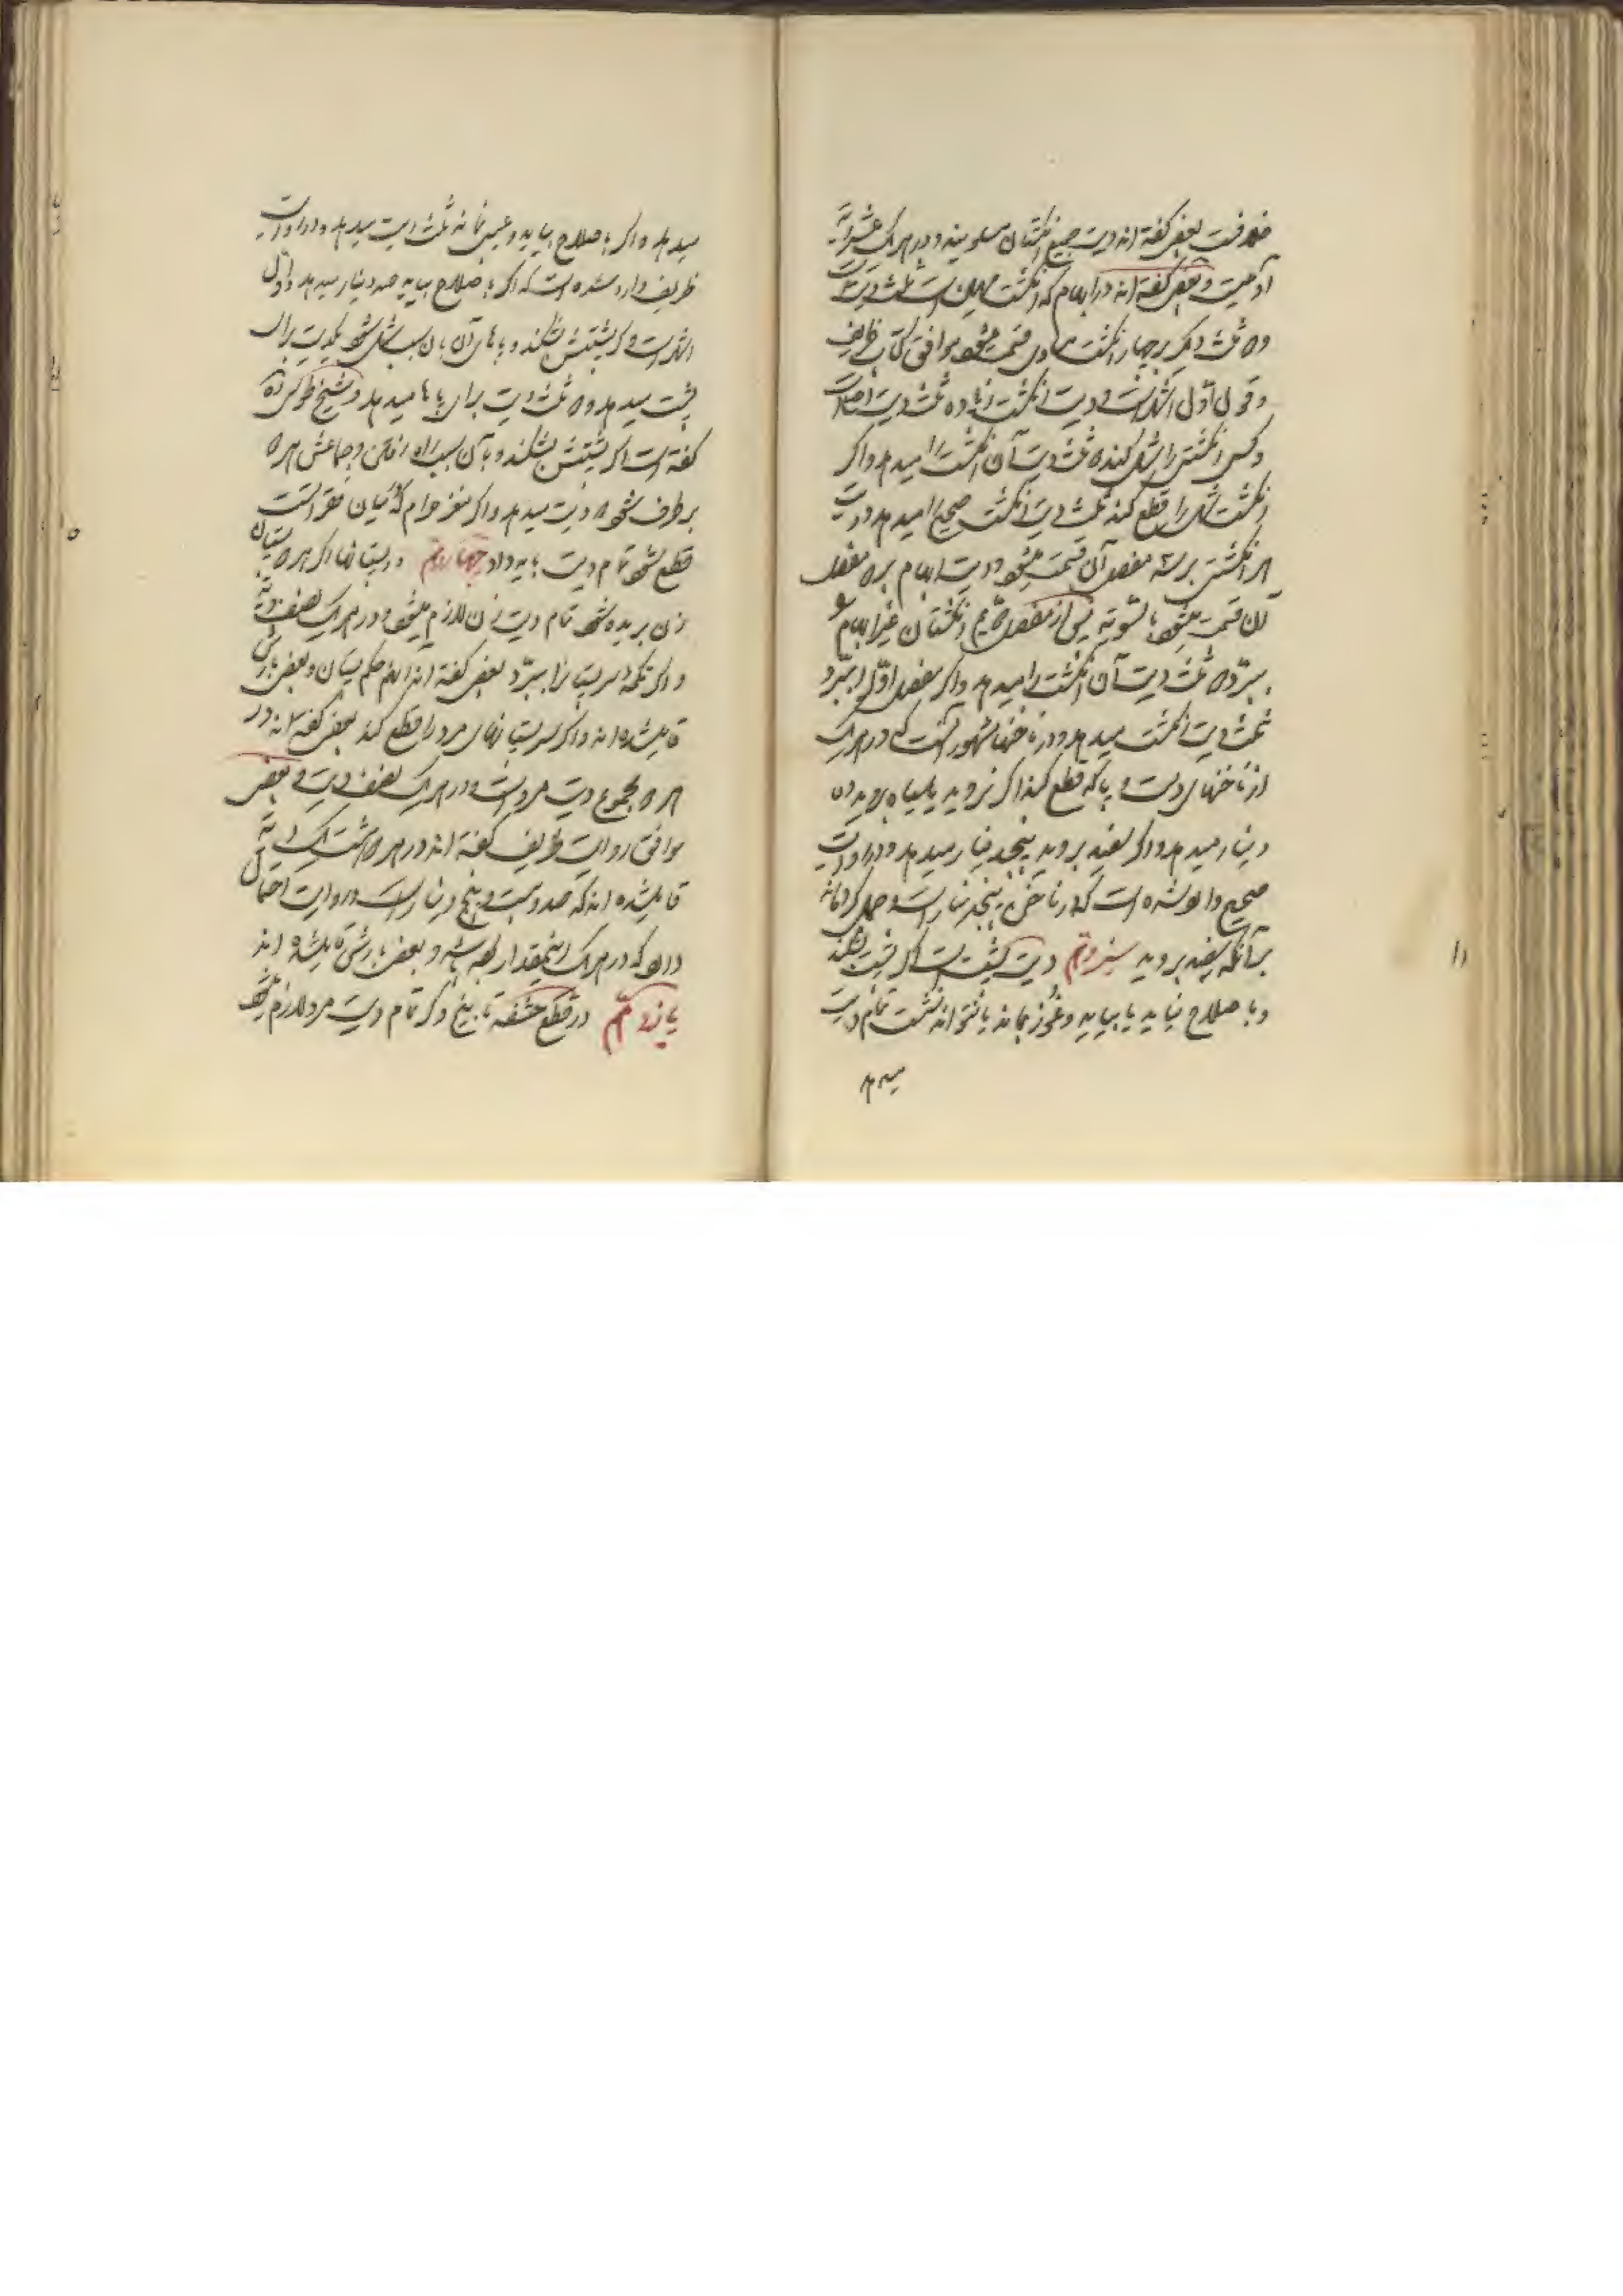 خلافت بعضی گفته اند دیت جمیع انگشتان مساویند و در هر یک عشر دیة
آدمیست و بعضی گفته اند در ابهام که انگشت مهین است ثلث دیت است
و دو ثلث دیگر بر چهار انگشت مساوی قسمت میشود موافق کتاب ظریف
و قول اول اشهر است و دیت انگشت زیاده ثلث دیت اصلیست
و کسی انگشتی را شل کند دو ثلث دیت آن انگشت را میدهد و اگر
انگشت شل را قطع کند ثلث دیت انگشت صحیح را میدهد و دیت
هر انگشتی بر سه مفصل آن قسمت میشود و دیت ابهام بر دو مفصل
آن قسمت میشود بالسویه پس از مفصل دویم انگشتان غیر ابهام
ببرد دو ثلث دیت آن انگشت را میدهد و اگر مفصل اول را ببرد
ثلث دیت انگشت میدهد و در ناخنها مشهور آنست که در هر یک
از ناخنهای دست و پا که قطع کند اگر نروید یا سیاه بروید ده
دینار میدهد و اگر سفید بروید پنجدینار میدهد و در روایت
صحیح وارد شده است که در ناخن پنجدینار است و حمل کرده اند
بر آنکه سفید بروید سیزدهم دیت پشت است اگر پشت بشکند
و با صلاح نیاید یا بیاید و کوز بماند یا نتواند نشست تمام دیت
میدهد
میدهد و اگر باصلاح بیاید و عیبی نماند ثلث دیت میدهد و در روایت
ظریف وارد شده است که اگر باصلاح بیاید صد دینار میدهد و اول
اشهر است و اگر پشتش بشکند و پاهای آن بآن سبب شل شود یکدیت برای
پشت میدهد و دو ثلث دیت برای پاها میدهد و شیخ طوسی ره
گفته است اگر پشتش بشکند و بآن سبب راه رفتن و جماعش هر دو
برطرف شود دو دیت میدهد و اگر مغز حرام که میان فقراتست
قطع شود تمام دیت باید داد چهاردهم در پستانها اگر هر دو پستان
زن بریده شود تمام دیت زن لازم میشود و در هر یک نصف دیة
و اگر تکمه سر پستانرا ببرد بعضی گفته اند آنهم حکم پستان و بعضی بارش
قایل شده اند و اگر سر پستانهای مرد را قطع کند بعضی گفته اند در
هر دو مجموع دیت مرد است و در هر یک نصف دیت و بعضی
موافق روایت ظریف گفته اند در هر دو هشت یک دیة
قایل شده اند که صد و بیست و پنج دینار است و در روایت احتمال
دارد که در هر یک اینمقدار لازم باشد و بعضی بارش قایل شده اند
پانزدهم در قطع حشفه تا بیخ ذکر تمام دیت مرد لازم میشود